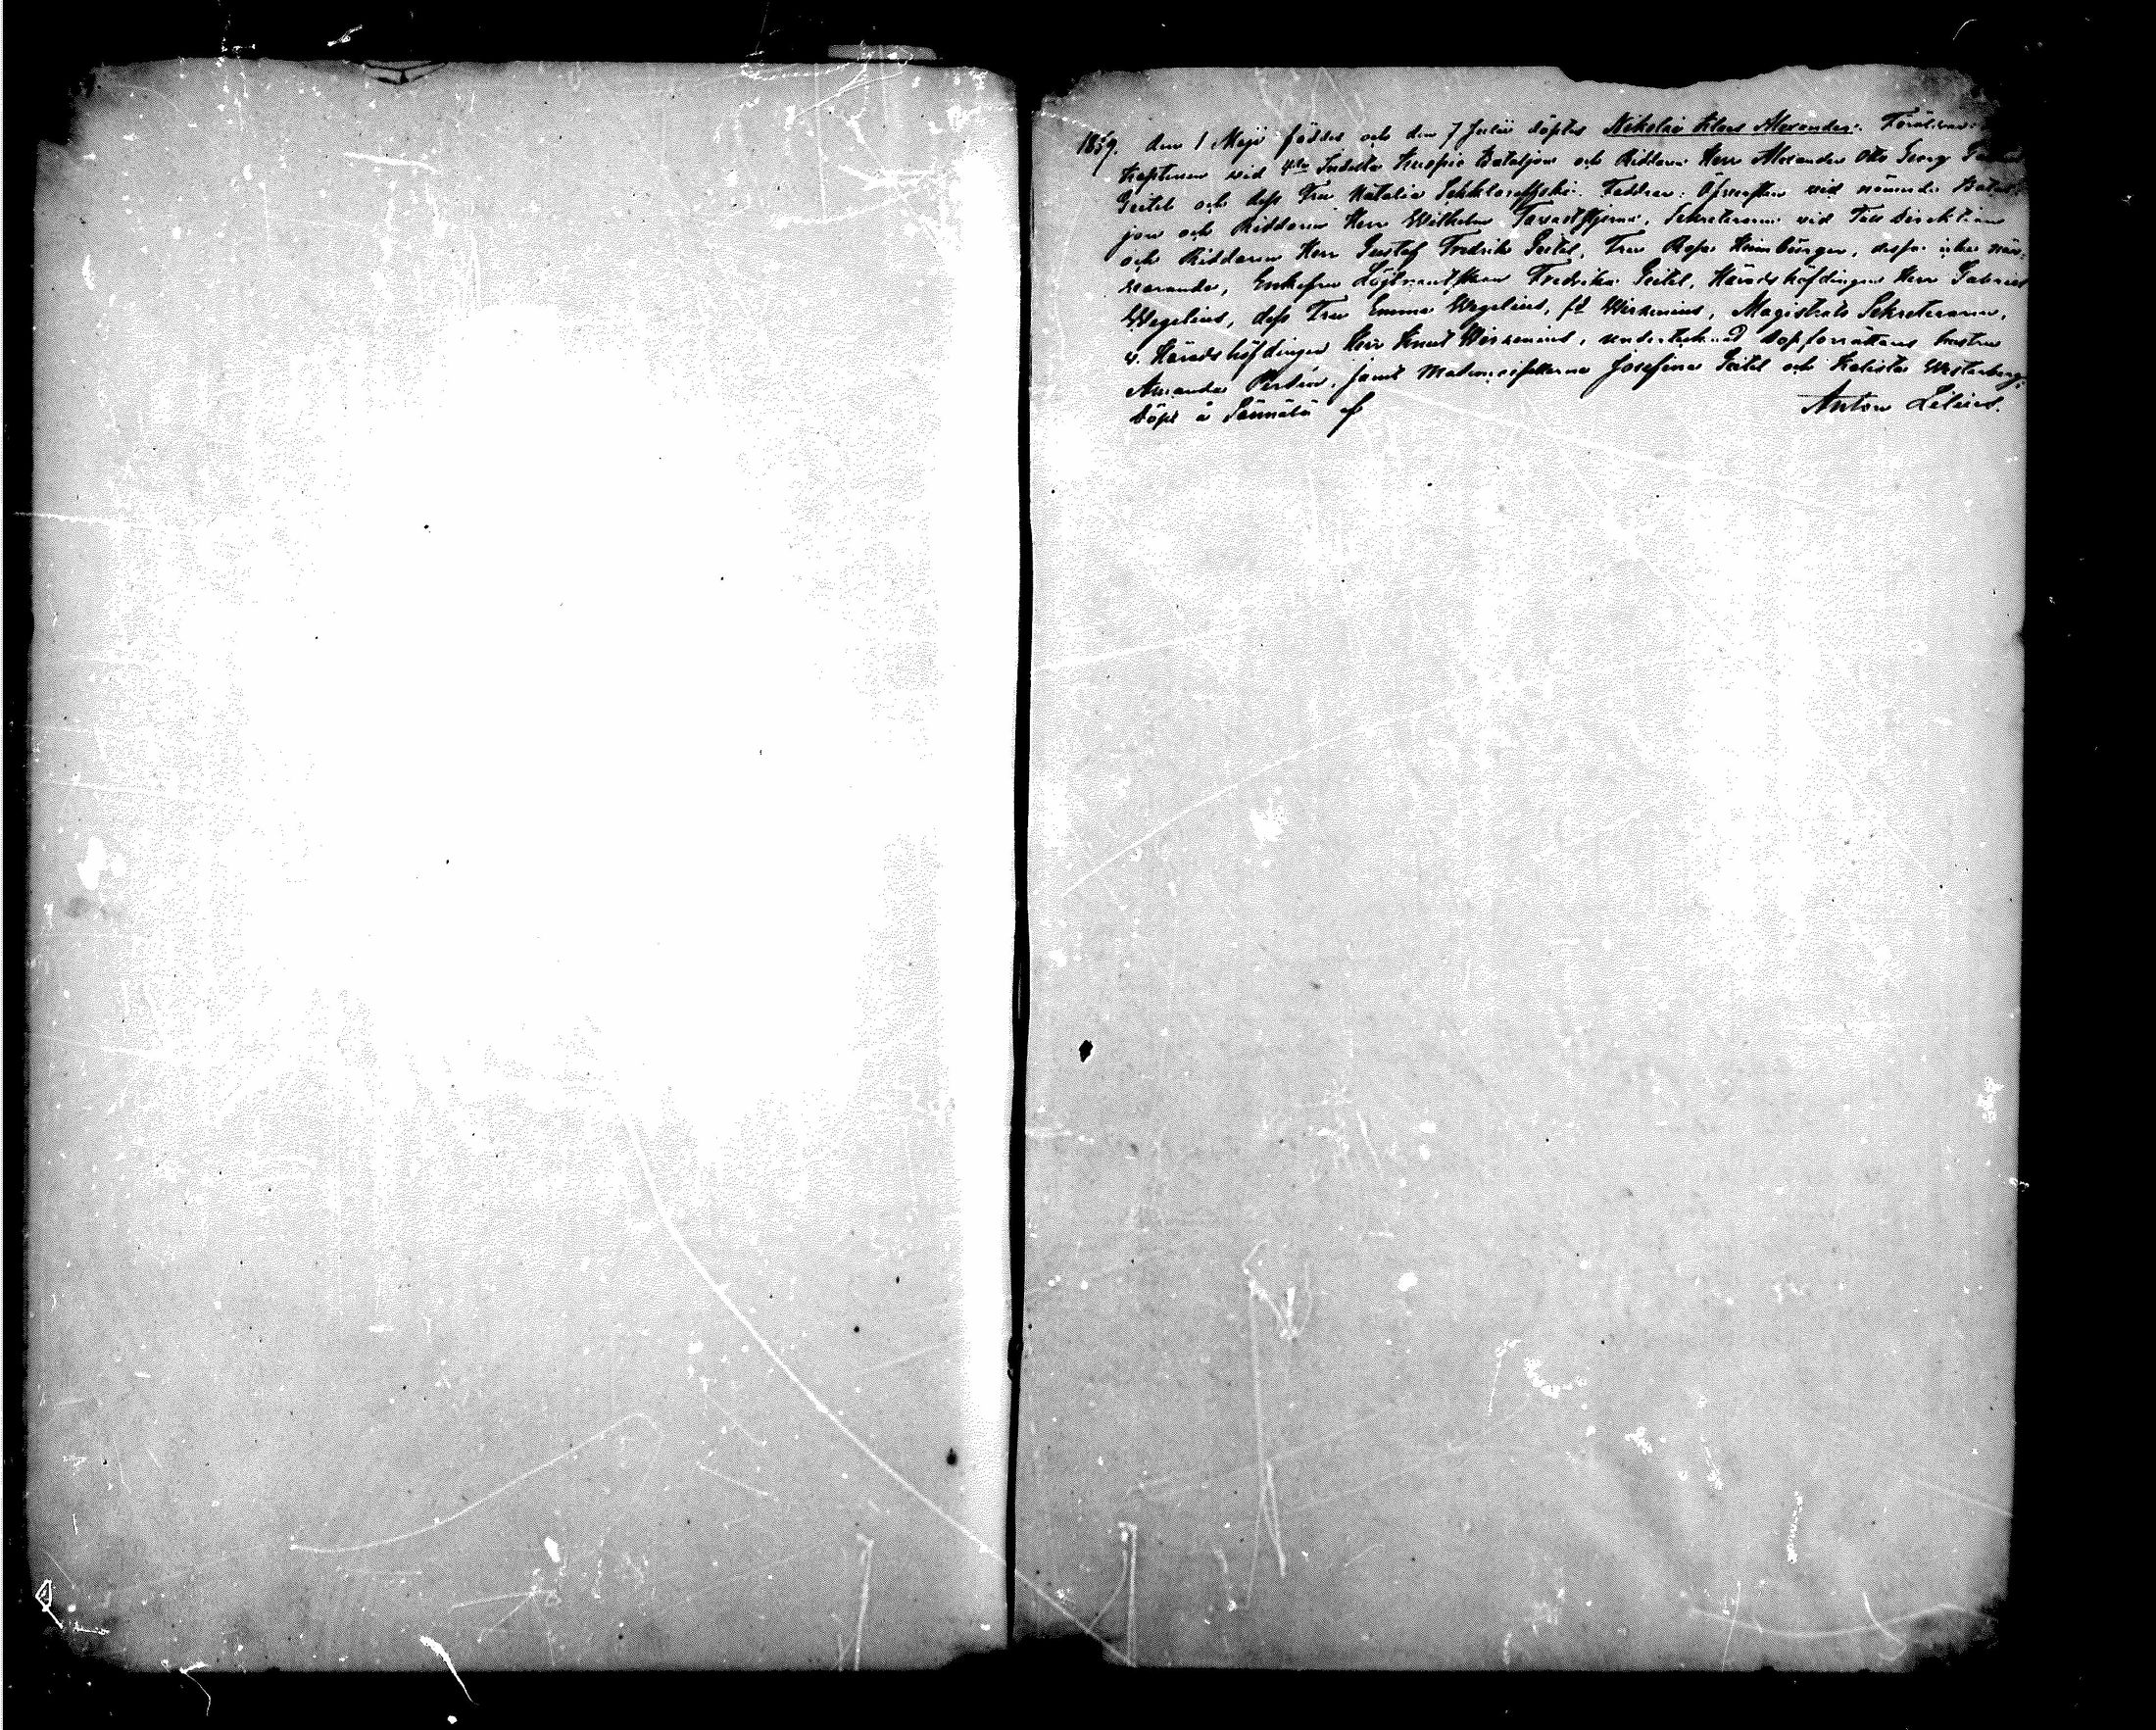 1859. den 1 Maji föddes och den 7 Julii döptes Nikolai Klaes Alexander. Föräldrar:
Kaptenen vid 4de Indelta Kuopio Bataljon och Riddaren Herr Alexander Otto Georg
Geitel och dess Fru Natalia Schklareffski. Faddrar: Öfversten vid nämnde Batal-
jon och Riddaren Herr Wilhelm Tavaststjerna, Sekreteraren vid Tull Direktion
och Riddaren Herr Gustaf Fredrik Geitel, Fru Rosa Heimbürger, dessa icke när-
varande, Enkefru Löjtnantskan Fredrika Geitel, Häradshöfdingen Herr Gabriel
Wegelius, dess Fru Emma Wegelius, fd Wirzenius, Magistrats Sekreteraren,
v. Häradshöfdingen Herr Knut Wirzenius, undertecknad Dopförrättares hustru
Amanda, jemt Mademoisellerna Josefina Geitel och Kalista Westerberg.
Döpt å Sännälä
Anton Lilius.